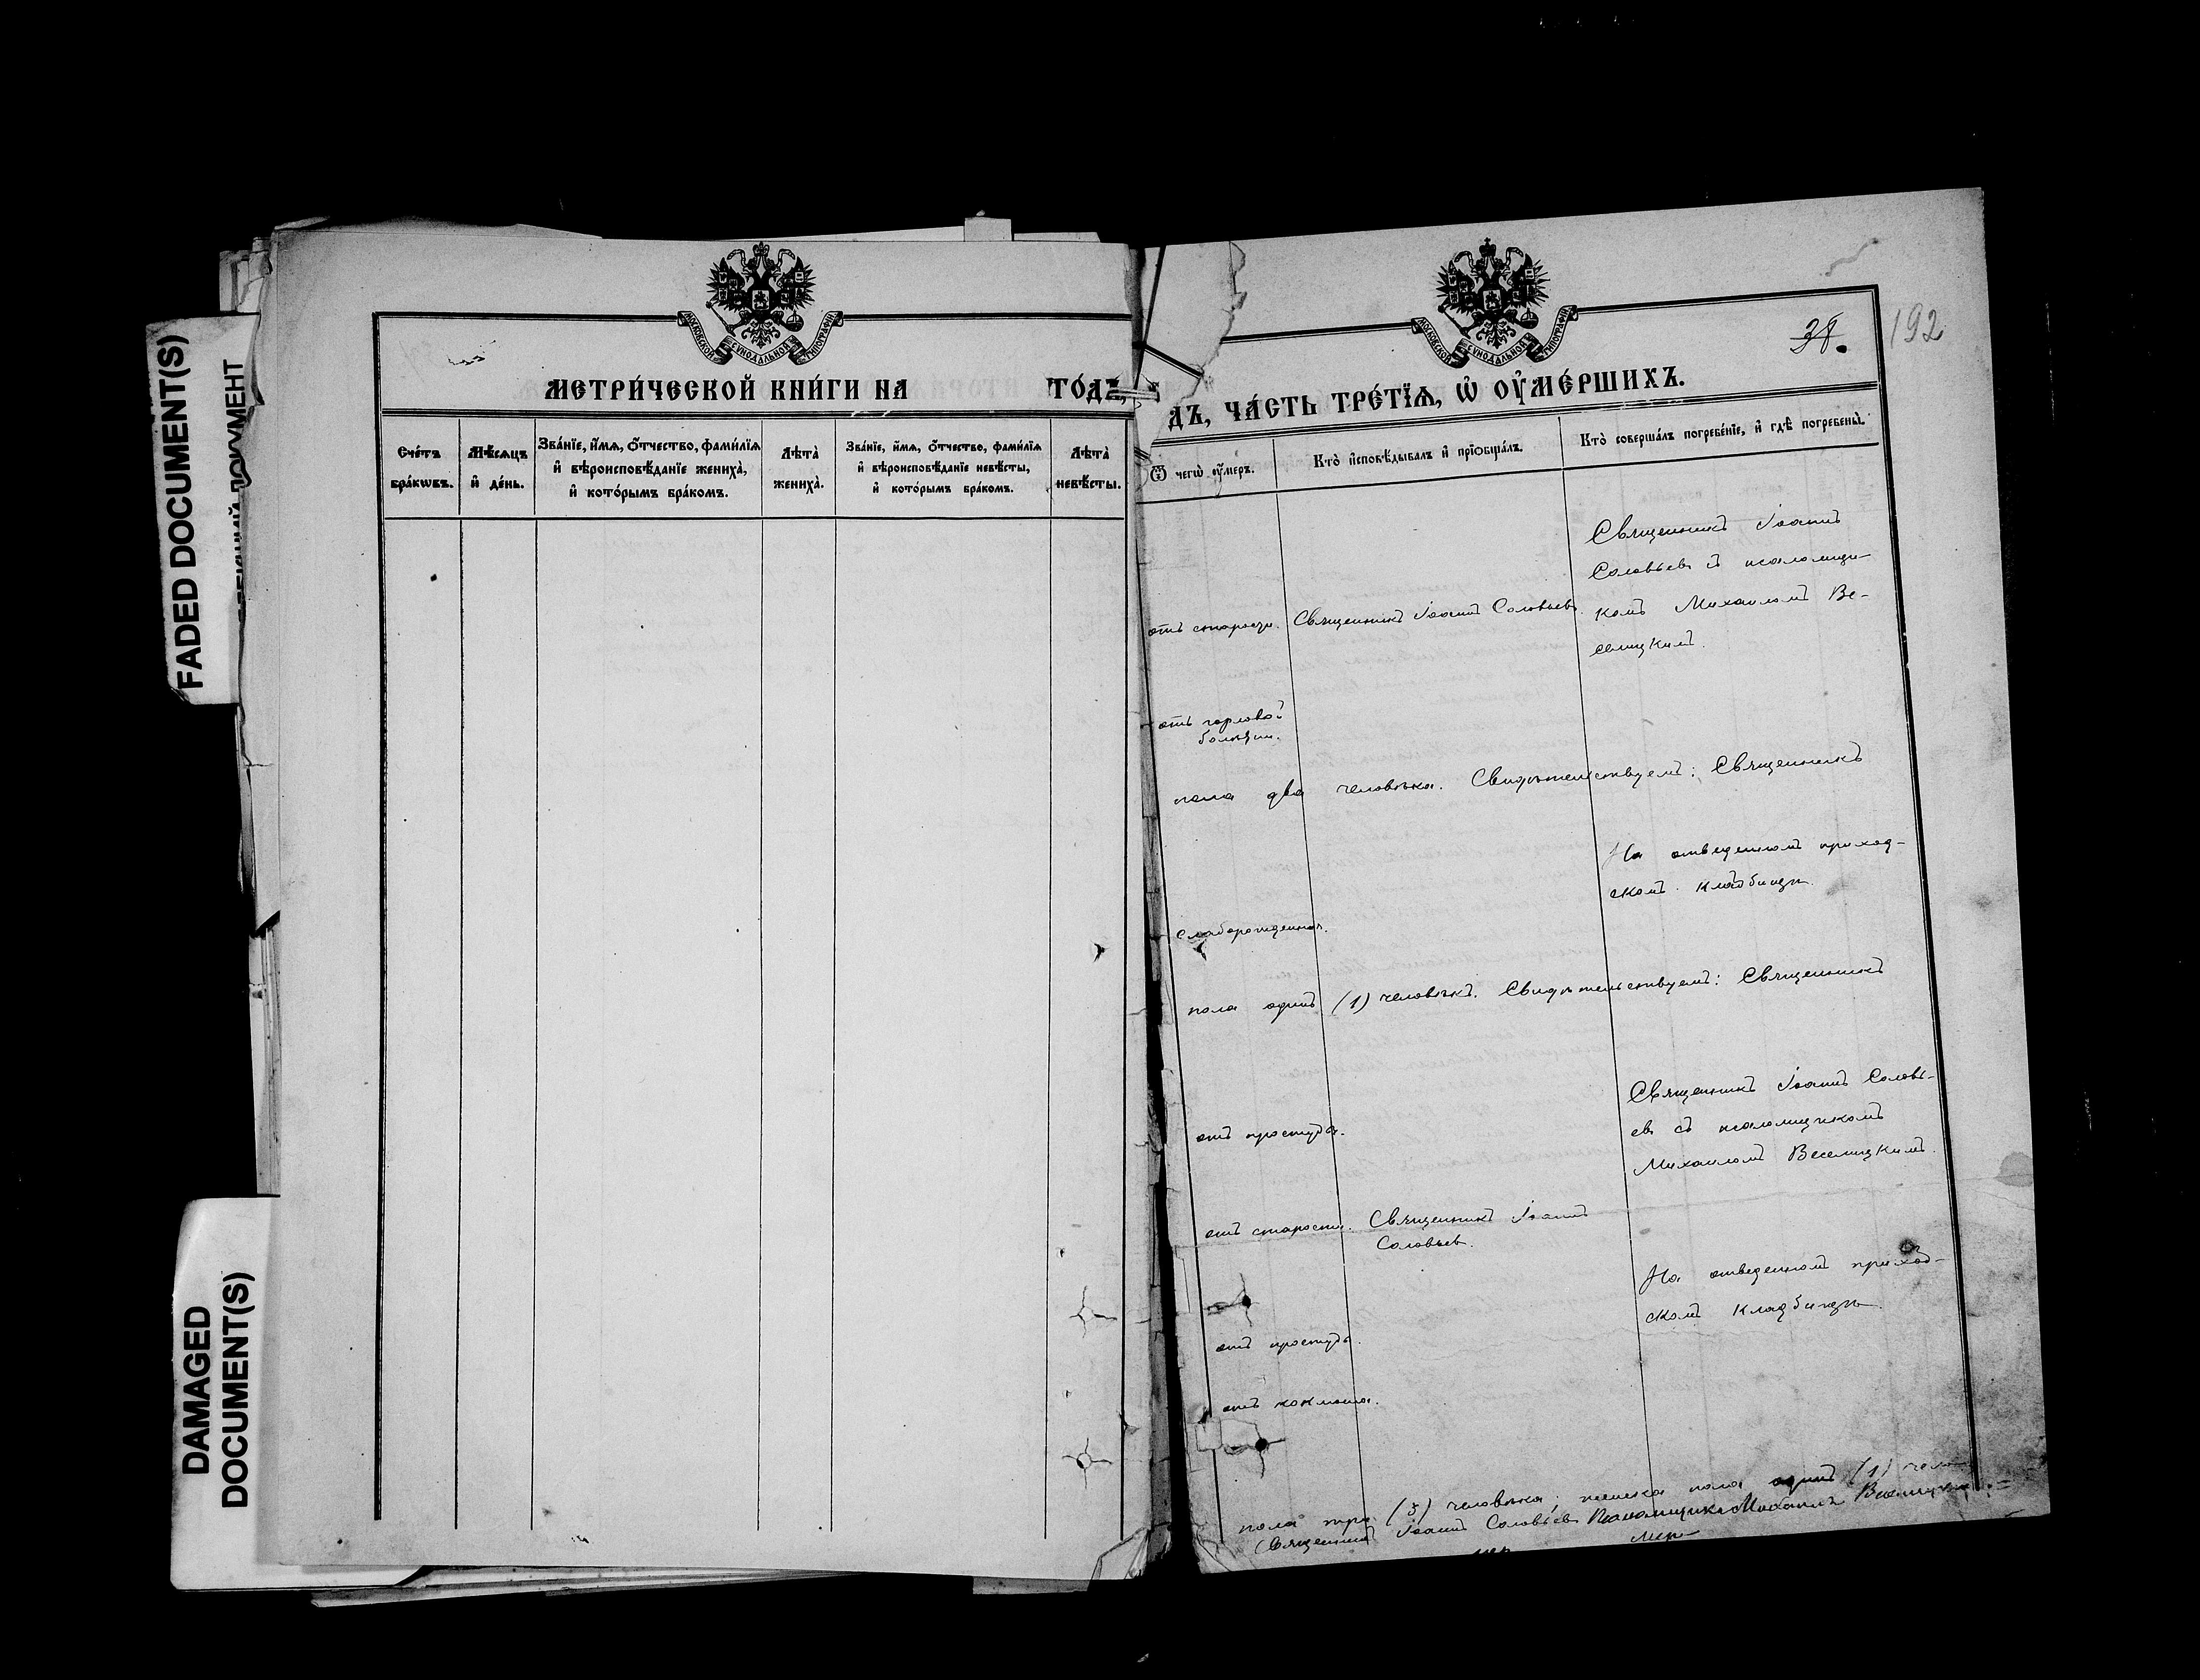 FADED DOCUMENT(S)
ДОКУМЕНТ
DAMAGED
DOCUMENT(S)
МОСКОВСКОЙ СУНОДАЛЬНОЙ ТИПОГРАФІИ
МЕТРИ́ЧЕСКОЙ КНИ́ГИ НА ГО́ДЪ,
Сче́тъ
бра́кωвъ.
Мѣ́сяцъ
и҆ де́нь.
Зва́нїе, и҆́мѧ, ѻ҆́тчество, фами́лїѧ
и҆ вѣроисповѣ́данїе жениха̀,
и҆ кото́рымъ бра́комъ.
Лѣта̀
жениха̀.
Зва́нїе, и҆́мѧ, ѻ҆́тчество, фами́лїѧ
и҆ вѣроисповѣ́данїе невѣ́сты,
и҆ кото́рымъ бра́комъ.
Лѣта̀
невѣ́сты.
МОСКОВСКОЙ СУНОДАЛЬНОЙ ТИПОГРАФІИ
38.
192
ДЪ, ЧА́СТЬ ТРЕ́ТЇѦ, Ѡ҆ ОУ҆МЕ́РШИХЪ.
Ѿ чегѡ̀ оу҆́меръ.
Кто̀ и҆сповѣ́дывалъ и҆ прїѻбща́лъ.
Кто̀ соверша́лъ погребе́нїе, и҆ гдѣ̀ погребены̀.
Священникъ Іоаннъ
Соловьевъ съ псаломщи-
комъ Михаиломъ Ве-
селицкимъ.
отъ старости.
Священникъ Іоаннъ Соловьевъ.
отъ горловой
болѣзни.
пола два человѣка. Свидѣтельствуемъ: Священникъ
На отведенномъ приход-
скомъ кладбищѣ.
слаборожденная.
пола одинъ (1) человѣкъ. Свидѣтельствуемъ: Священникъ
Священникъ Іоаннъ Соловь-
евъ съ псаломщикомъ
Михаиломъ Веселицкимъ.
отъ простуды.
отъ старости.
Священникъ Іоаннъ
Соловьевъ.
На отведенномъ приход-
скомъ кладбищѣ.
отъ простуды.
отъ коклюша.
пола три (3) человѣка; женска пола одинъ (1) чело-
Священникъ Іоаннъ Соловьевъ Псаломщикъ Михаилъ Веселицкій